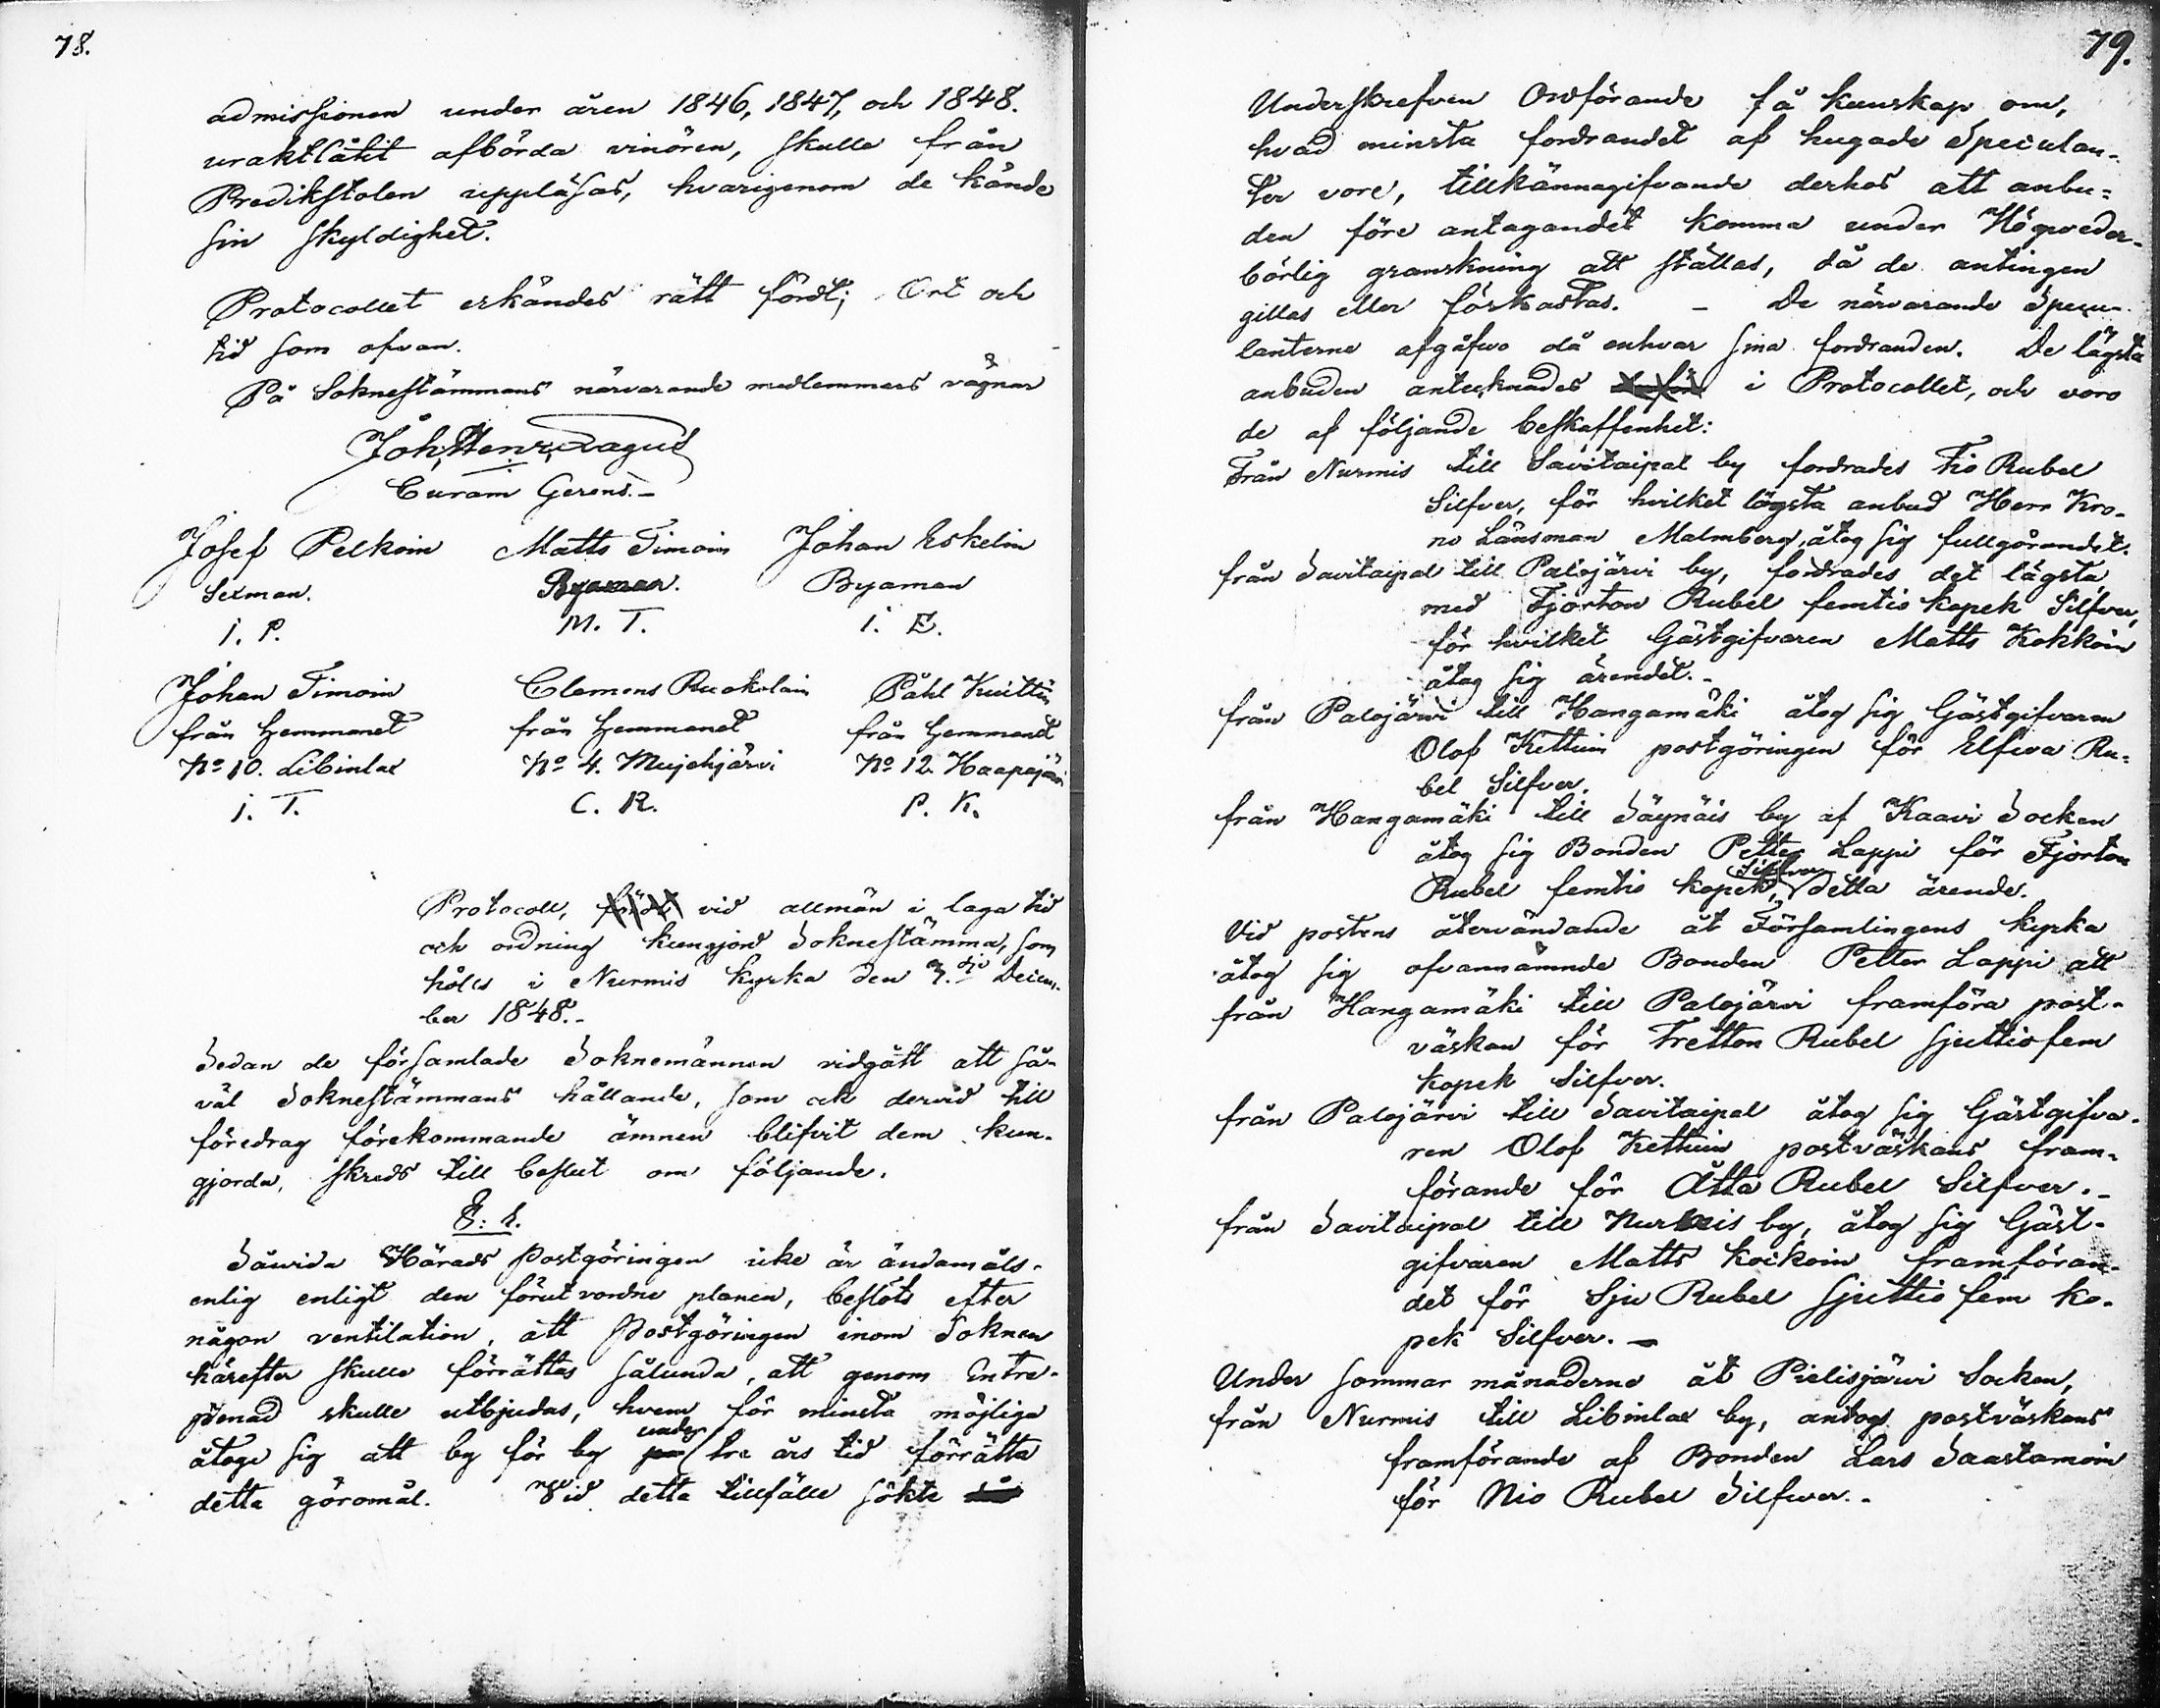 78.
admissionen under åren 1846, 1847, och 1848.
uraktlåtit afbörda vinören, skulle från
Predikstolen uppläsas, hvarigenom de kände
sin skyldighet.
Protocollet erkändes rätt fördt; Ort och
tid som ofvan.
På Soknestämmans närvarande medlemmars vägnar
Joh. Henr. Fagus
Curam Gerens.-
Josef Pelkoin Matts Timoin Johan Eskelin
Sexman. Byaman. Byaman
i. P. M. T. i. E.
Johan Timoin Clemens Ruokolain Påhl Kuittin
från hemmanet från hemmanet från hemmanet
No 10. Libinlax No 4. Mujehjärvi No 12. Haapajärvi
i. T. C. R. P. K.
Protocoll, vid allmän i laga tid
och ordning kungjord Soknestämma, som
hölls i Nurmis kyrka den 3.dje Decem-
ber 1848.-
Sedan de församlade Soknemännen vidgått att så-
väl Soknestämmans hållande, som ock dervid till
föredrag förekommande ämnen blifvit dem kun-
gjorda, skreds till beslut om följande.
§: 1.
Såvida Härads Postgöringen icke är ändamåls-
enlig enligt den förut vordne planen, beslöts efter
någon ventilation, att Postgöringen inom Soknen
härefter skulle förrättas sålunda, att genom Entre-
prenad skulle utbjudas, hvem för minsta möjliga
åtoge sig att by för by under tre års tid förrätta
detta göromål. Vid detta tillfälle sökte
79.
Underskrefven Ordförande få kunskap om,
hvad minsta fordrandet af hugade Speculan-
ter vore, tillkännagifvande derhos att anbu-
den före antagandet komma under Högveder-
börlig granskning att ställas, då de antingen
gillas eller förkastas. - De närvarande Specu-
lanterne afgåfvo då enhvar sina fordranden. De lägsta
anbuden antecknades i Protocollet, och voro
de af följande beskaffenhet:
Från Nurmis till Savitaipal by fordrades Tio Rubel
Silfver, för hvilket lägsta anbud Herr Kro-
no Länsman Malmberg, åtog sig fullgörandet.
från Savitaipal till Palojärvi by, fordrades det lägsta
med Fjorton Rubel femtio kopek Silfver,
för hvilket Gästgifvaren Matts Kokkoin
åtog sig ärendet.-
från Palojärvi till Hangamäki åtog sig Gästgifvaren
Olof Kettuin postgöringen för Elfva Ru-
bel Silfver.
från Hangamäki till Säynäis by af Kaavi Socken
åtog sig Bonden Petter Lappi för Fjorton
Rubel femtio kopek, Silfver detta ärende.
Vid postens återvändande åt Församlingens kyrka
åtog sig ofvannämnde Bonden Petter Lappi att
från Hangamäki till Palojärvi framföra post-
väskan för Tretton Rubel sjuttiofem
kopek Silfver.
från Palojärvi till Savitaipal åtog sig Gästgifva-
ren Olof Kettuin postväskans fram-
förande för Åtta Rubel Silfver.-
från Savitaipal till Nurmis by, åtog sig Gäst-
gifvaren Matts Kockoin framföran-
det för Sju Rubel sjuttio fem ko-
pek Silfver. -
Under sommar månaderne åt Pielisjärvi Socken,
från Nurmis till Libinlax by, antogs postväskans
framförande af Bonden Lars Saastamoin
för Nio Rubel Silfver.-